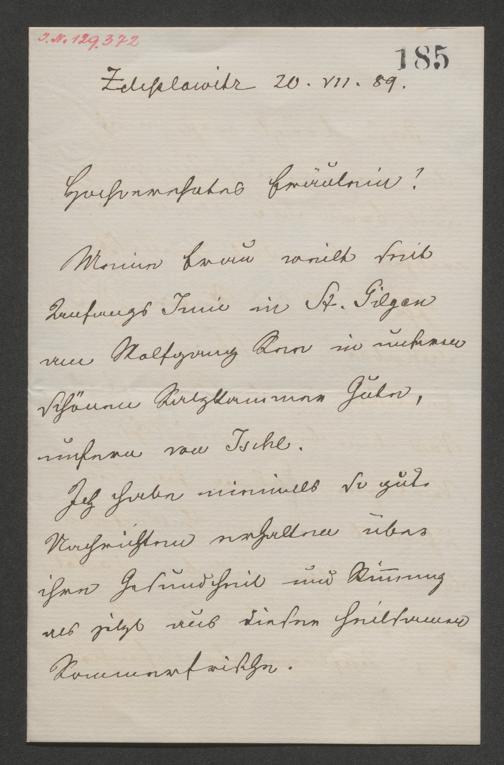 J.N. 129.372
185
Zdislawitz 20. VII. 89.
Hochverehrtes Fräulein!
Meine Frau weilt seit
Anfangs Juni in St. Gilgen
am Wolfgang See in unserem
schönen Salzkammer Gute,
unfern von Ischl.
Ich habe niemals so gute
Nachrichten erhalten über
ihre Gesundheit und Stimmung
als jetzt aus dieser heilsamen
Sommerfrische.